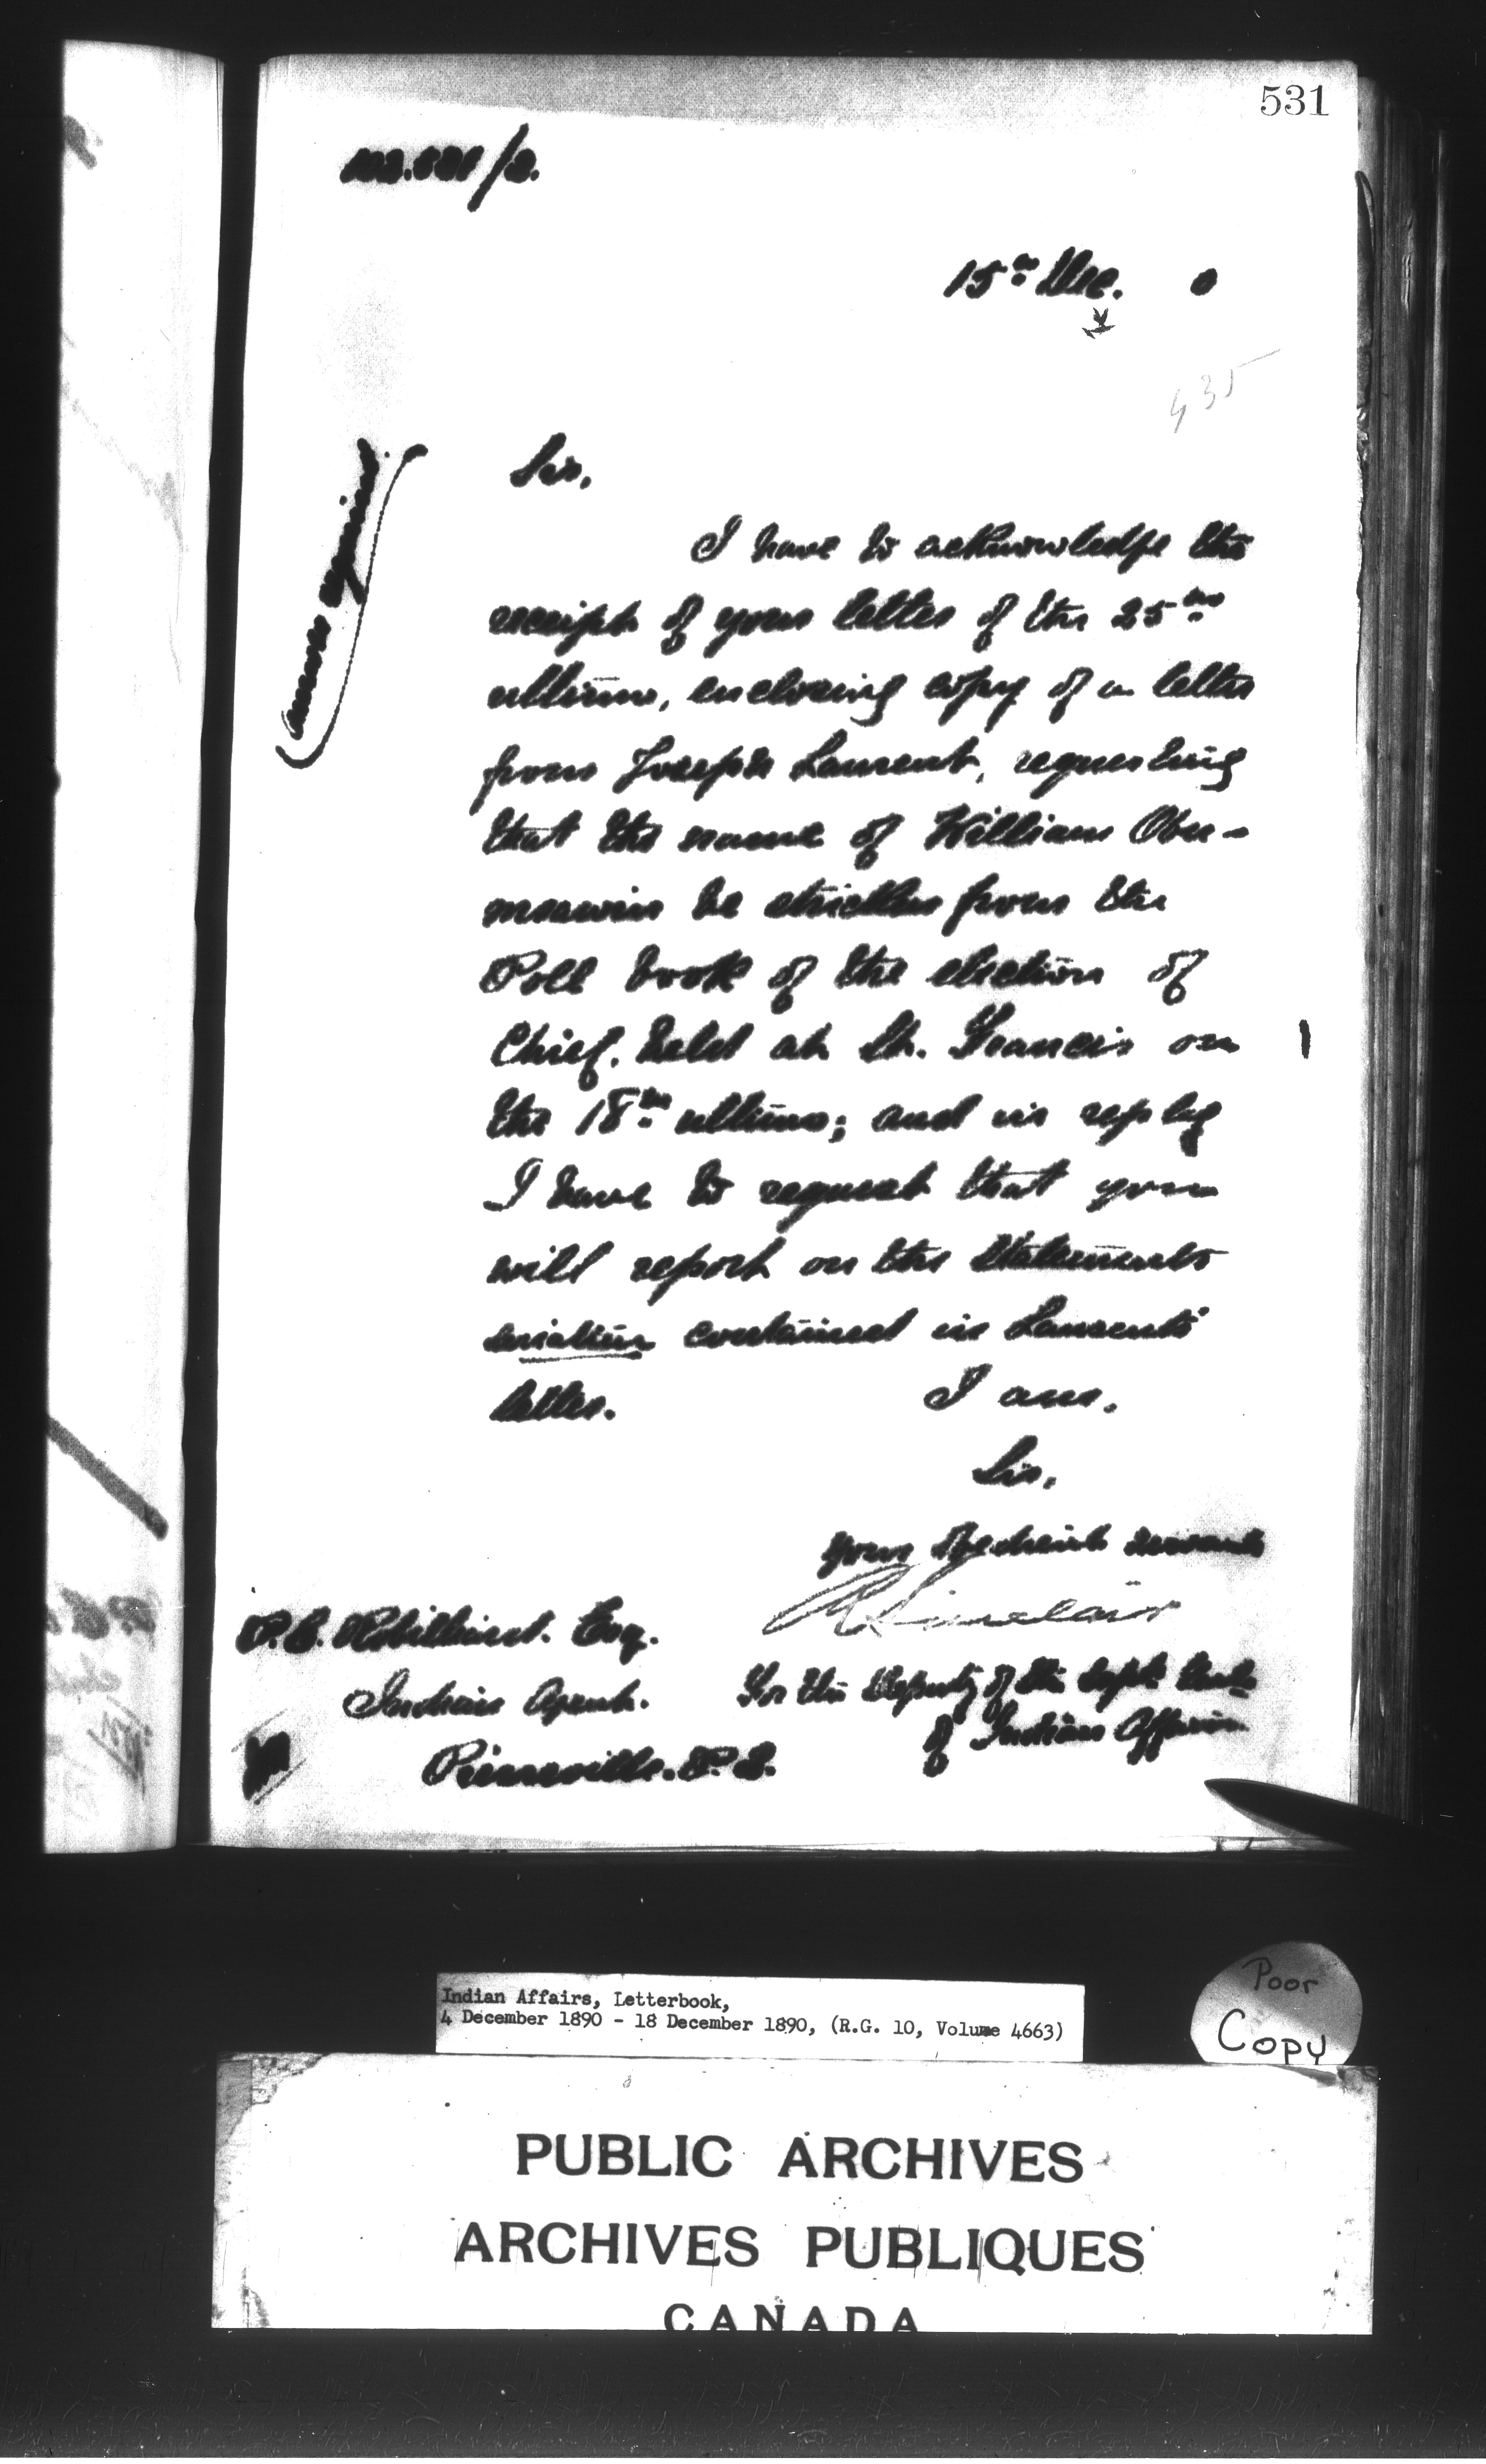 531
15th Dec. 0
435
Sir,
I have to acknowledge the
receipt of your letter of the 25th
ultimo, enclosing copy of a letter
from Joseph Laurent, requesting
that the name of William Obu-
msawin be stricken from the
Poll book of the election of
Chief, held at St. Francis on
the 18th ultimo; and in reply
I have to request that you
will report on the statements
seriatim contained in Laurent's
letter. I am,
Sir,
Your obedient servant
R Sinclair
For the Deputy of the Supt. Genl.
of Indian Affairs
P.E. Robillard, Esq.
Indian Agent.
Pierreville. P.Q.
Answer required
Indian Affairs, Letterbook,
4 December 1890 - 18 December 1890, (R.G. 10, Volume 4663)
Poor
Copy
PUBLIC ARCHIVES
ARCHIVES PUBLIQUES
CANADA